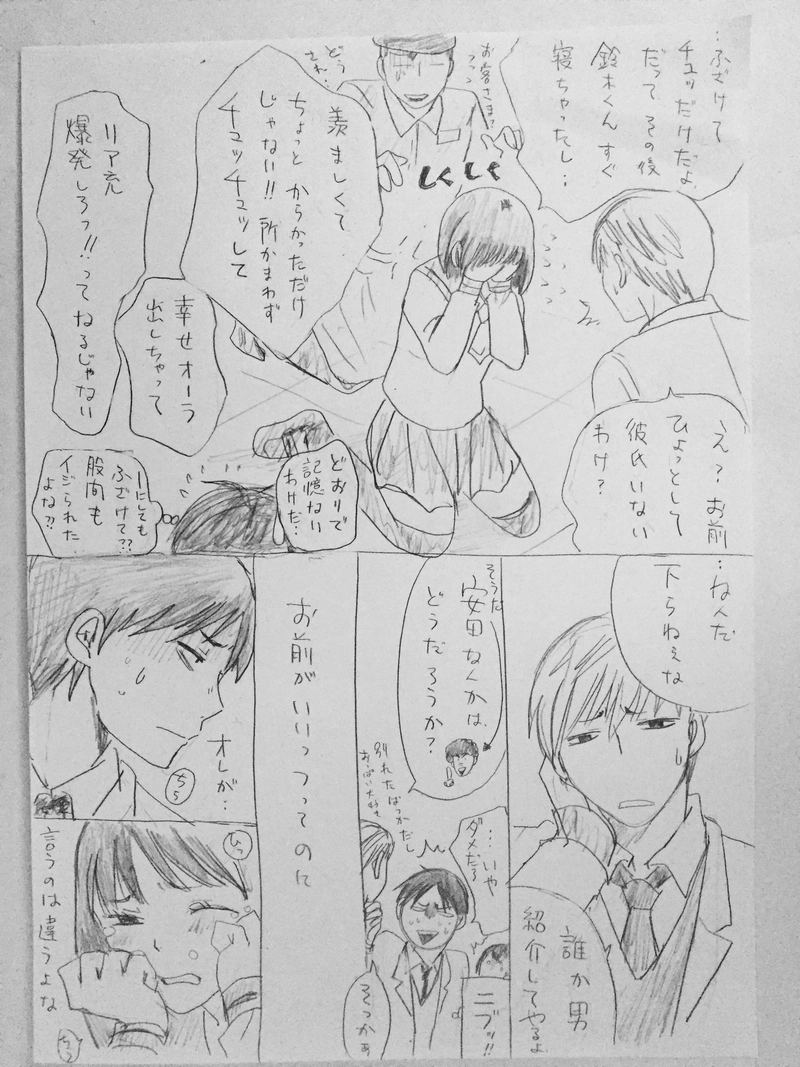 …ふざけて
チュッだけだよ
だって その後
鈴木くん すぐ
寝ちゃったし…
お客さま?
どう
され…
しくしく
羨ましくて
ちょっと からかっただけ
じゃない!! 所かまわず
チュッチュッして
幸せオーラ
出しちゃって
リア充
爆発しろっ!!ってねるじゃない
え? お前
ひょっとして
彼氏いない
わけ?
どおりで
記憶ない
わけだ…
ーにしても
ふざけて??
股間も
イジられた
よな??
…なんだ
下らねぇな
誰か男
紹介してやるよ
そうだ
安田なんかは、
どうだろうか?
別れたばっかだし
おっぱい大好き
…いや
ダメだろ
ニブッ!!
そっかぁ
お前がいいっつってのに
オレが…
ちら
ひっ
言うのは違うよな
ちら